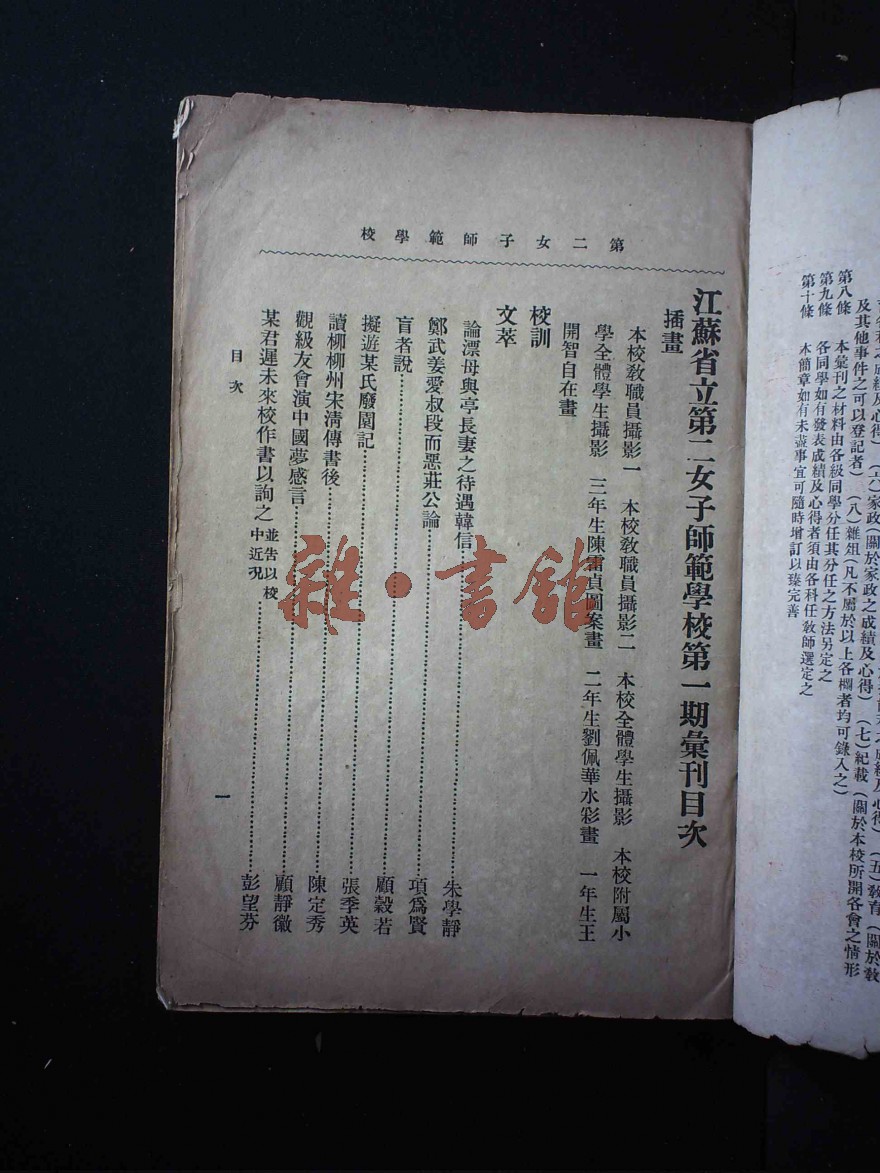 及其他事件之可以登記者）（八）雜組（凡不屬於以上各欄者均可錄入之）
第八條　本彙刊之材料由各級同學分任其分任之方法另定之
第九條　各同學如有發表成績及心得者須由各科任教師選定之
第十條　本簡章如有未盡事宜可隨時增訂以臻完善
第二女子師範學校
江蘇省立第二女子師範學校第一期彙刊目次
插畫
本校教職員攝影一　本校教職員攝影二　本校全體學生攝影　本校附屬小
學全體學生攝影　三年生陳霄貞圖案畫　二年生劉佩華水彩畫　一年生王
開智自在畫
校訓
文萃
論漂母與亭長妻之待遇韓信……朱學靜
鄭武姜愛叔段而惡莊公論……項爲賢
盲者說……顧穀若
擬遊某氏廢園記……張季英
讀柳柳州宋清傳書後……陳定秀
觀級友會演中國夢感言……顧靜徽
某君遲未來校作書以詢之並告以校中近況……彭望芬
目次
一
雜·書館